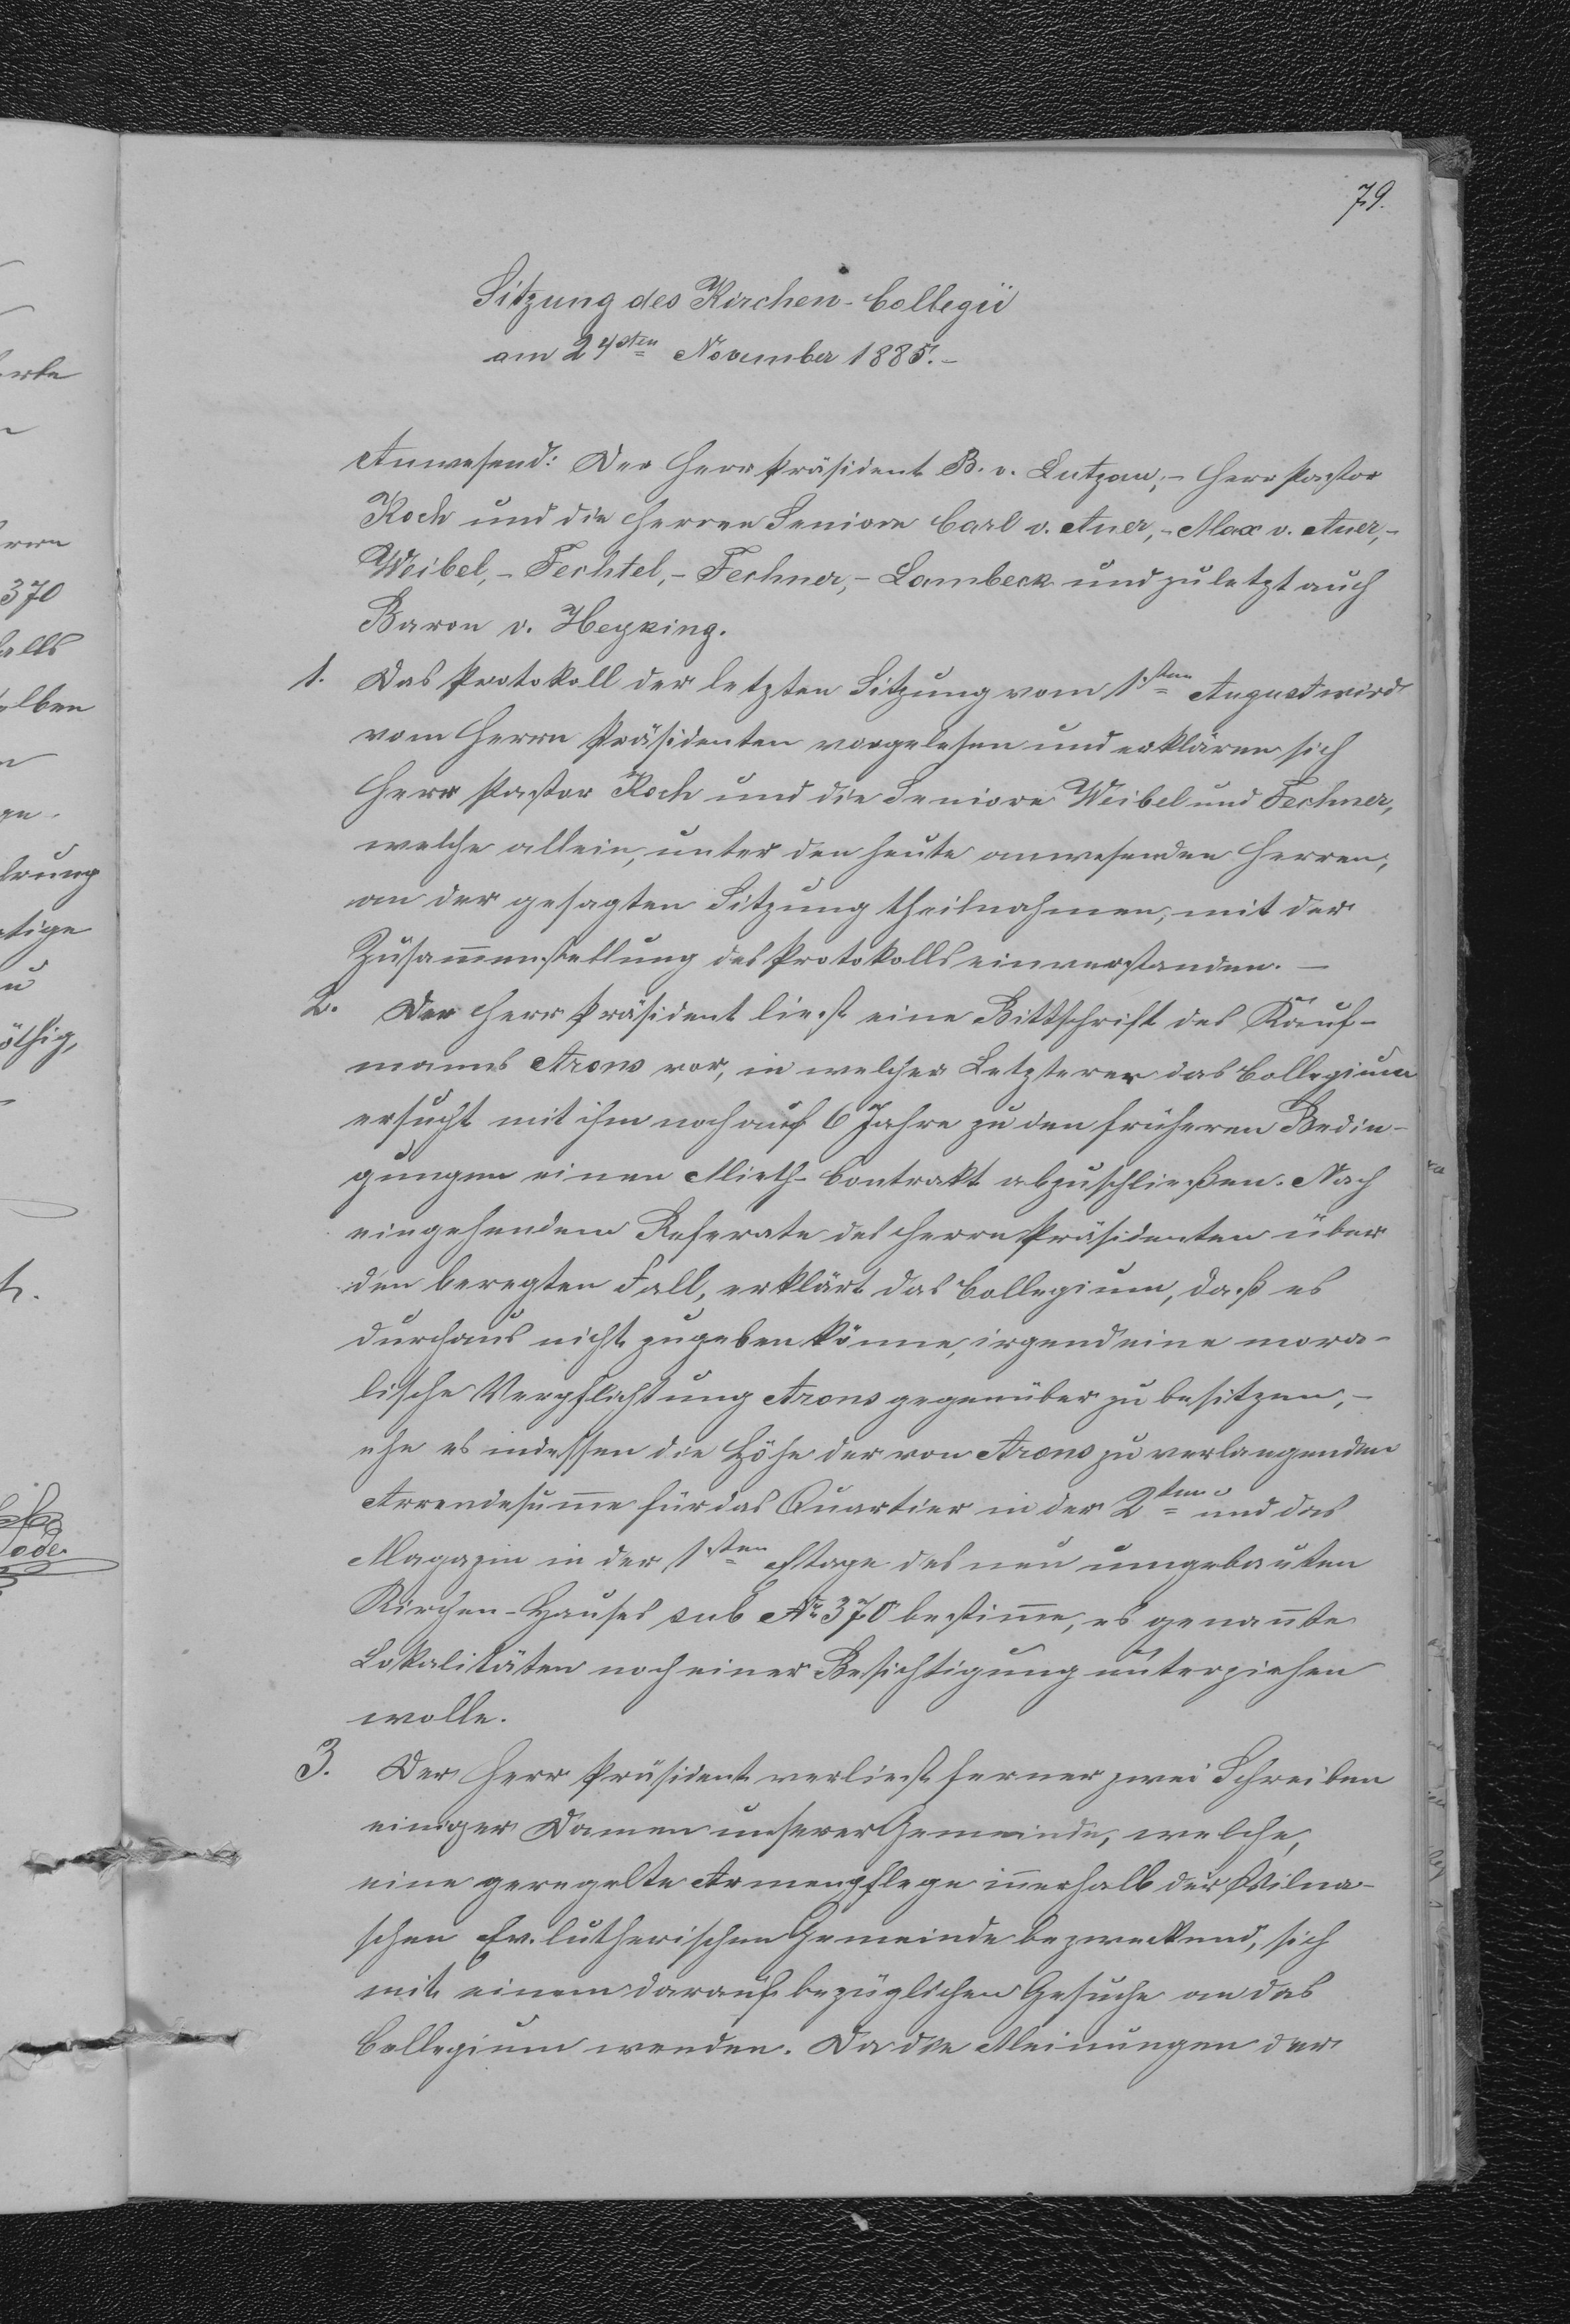 79.
Sitzung des Kirchen-Collegii
am 24sten November 1885.-
Anwesend: Der Herr Präsident B. v. Lutzau,- Herr Pastor
Koch und die Herren Seniore Carl v. Auer,- Max v. Auer,-
Weibel,- Fechtel,- Fechner,- Lambeck und zuletzt auch
Baron v. Heyking.
1. Das Protokoll der letzten Sitzung vom 1sten August wird
vom Herrn Präsidenten vorgelesen und erklären sich
Herr Pastor Koch und die Seniore Weibel und Fechner,
welche allein, unter den heute anwesenden Herren,
an der gesagten Sitzung theilnahmen, mit der
Zusammenstellung des Protokolls einverstanden. -
2. Der Herr Präsident liest eine Bittschrift des Kauf-
manns Arons vor, in welcher Letzterer das Collegium
ersucht mit ihm noch auf 6 Jahre zu den früheren Bedin-
gungen einen Mieth-Contrakt abzuschließen. Nach
eingehendem Referate des Herrn Präsidenten über
den beregten Fall, erklärt das Collegium, daß es
durchaus nicht zugeben könne, irgend eine mora-
lische Verpflichtung Arons gegenüber zu besitzen,-
ehe es indessen die Höhe der von Arons zu verlangenden
Arrendesumme für das Quartier in der 2ten und das
Magazin in der 1sten Etage des neu umgebauten
Kirchen-Hauses sub No 370 bestimme, es genannte
Lokalitäten noch einer Besichtigung unterziehen
wolle.
3. Der Herr Präsident verliest ferner zwei Schreiben
einiger Damen unserer Gemeinde, welche,
eine geregelte Armenpflege innerhalb der Wilna-
schen Ev. lutherischen Gemeinde bezweckend, sich
mit einem darauf bezüglichen Gesuche an das
Collegium wenden. Da die Meinungen der